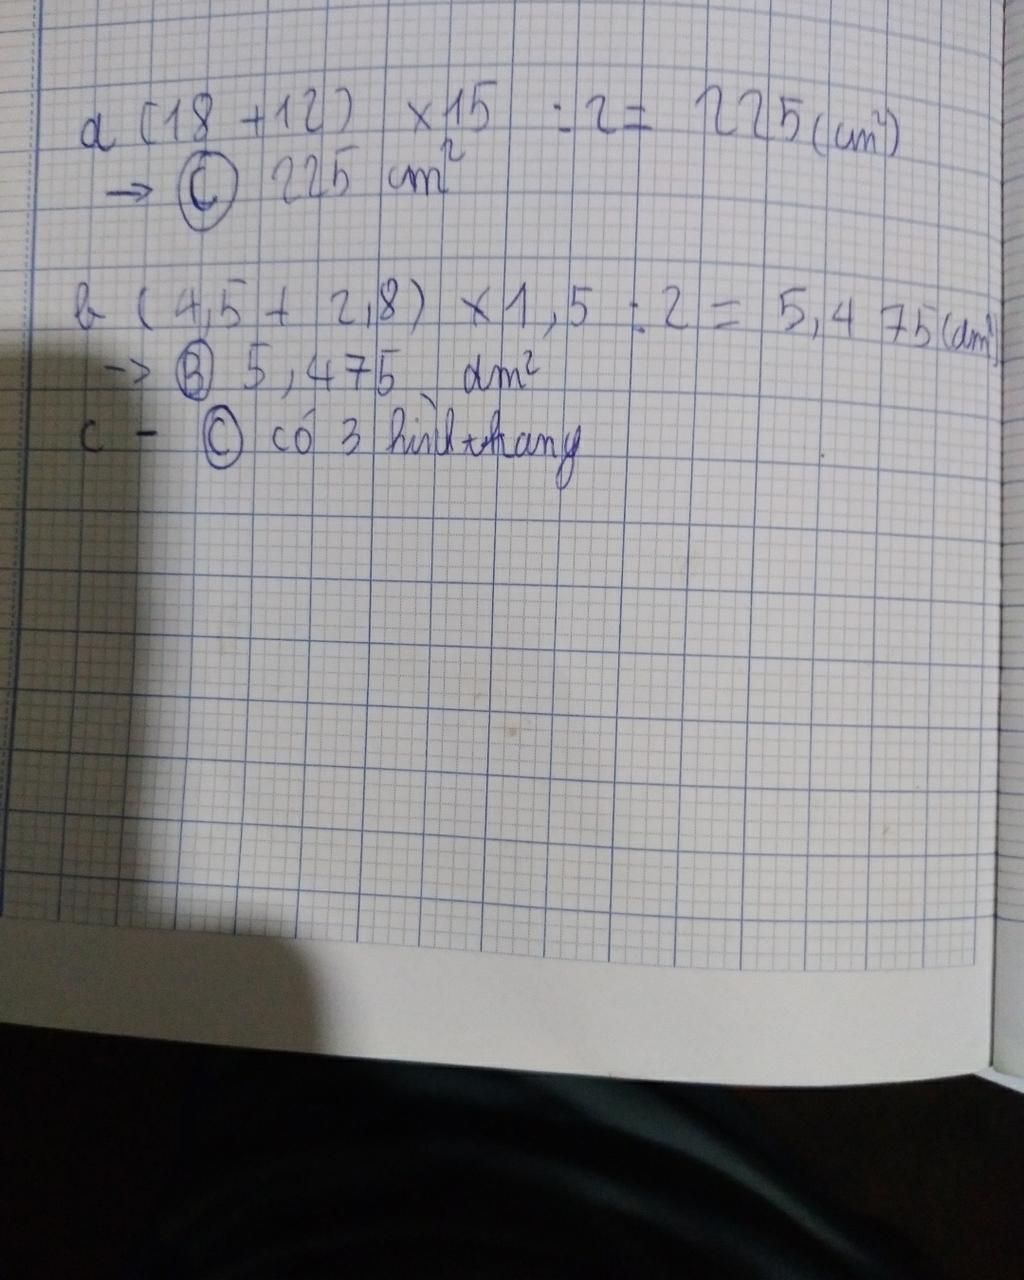 a (18 + 12) x 15 : 2 = 225 (cm²)
→ C 225 cm²
b (4,5 + 2,8) x 1,5 : 2 = 5,475 (dm²)
→ B 5,475 dm²
c - C có 3 hình thang